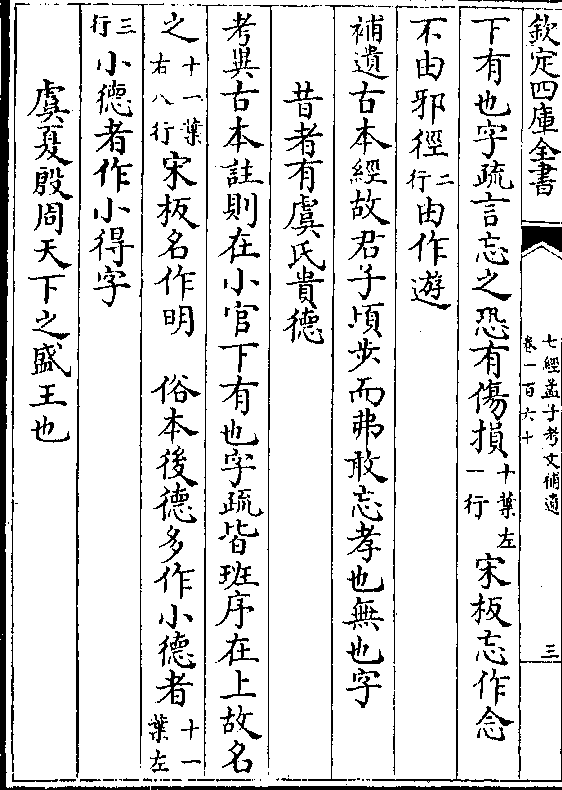 欽定四庫全書
七經孟子考文補遺
卷一百六十
三
下有也字疏言忘之恐有傷損十葉左一行　宋板忘作念
不由邪徑二行由作遊
補遺古本經故君子頃步而弗敢忘孝也無也字
昔者有虞氏貴德
考異古本註則在小官下有也字疏皆班序在上故名
之十一葉右八行宋板名作明　俗本後德多作小德者十一葉左
三行小德者作小得字
虞夏殷周天下之盛王也